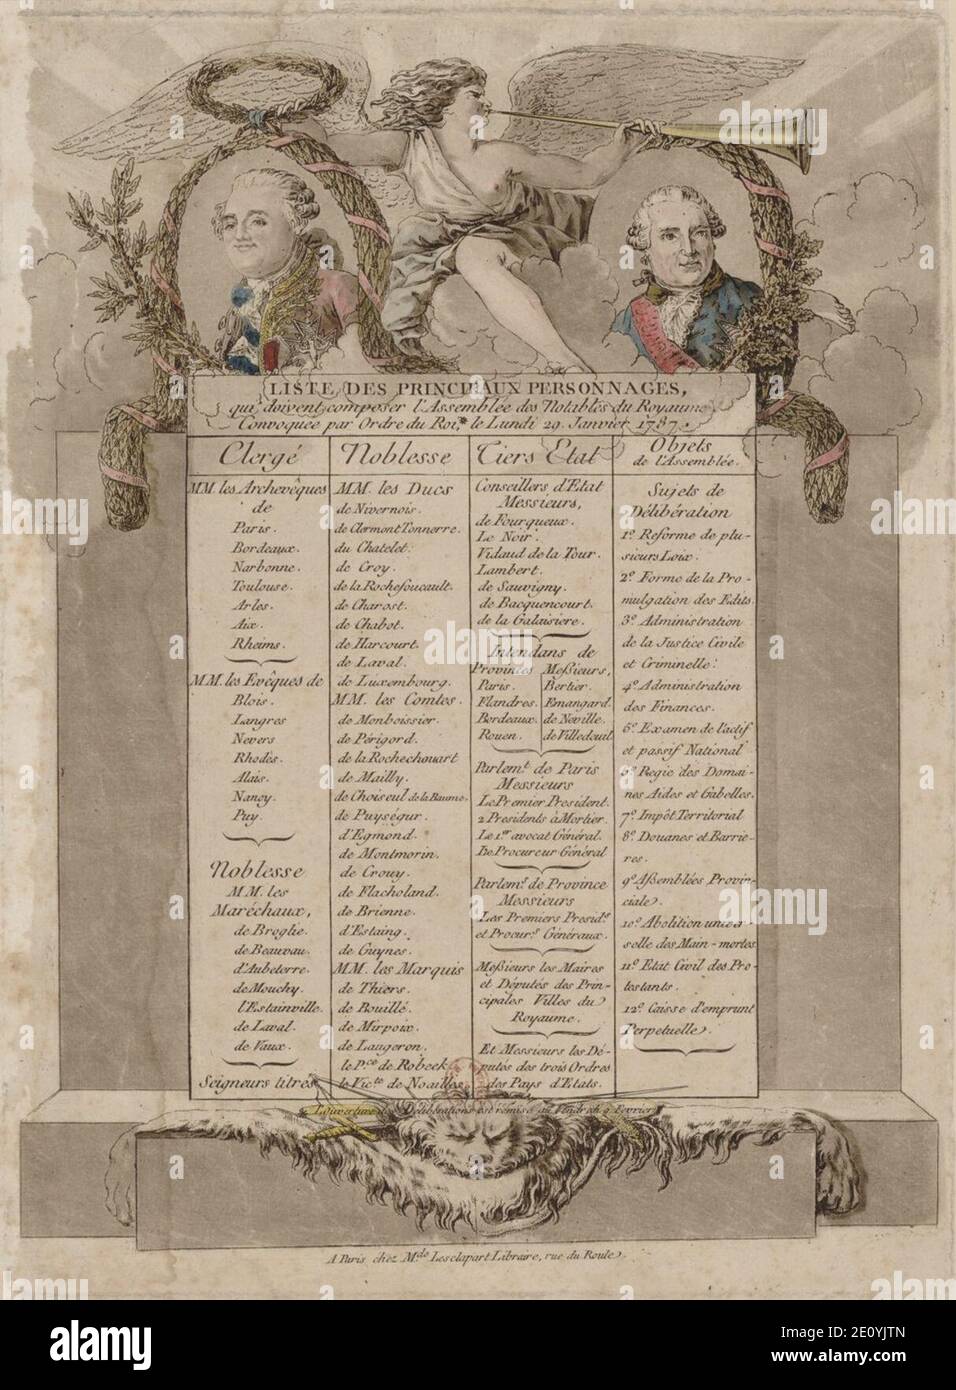 LISTE DES PRINCIPAUX PERSONNAGES,
qui doivent composer l'Assemblée des Notables du Royaume
Convoquée par Ordre du Roi, le Lundi 29. Janvier 1787.
Clergé
MM. les Archevêques
de
Paris.
Bordeaux.
Narbonne.
Toulouse.
Arles.
Aix.
Rheims.
MM. les Evêques de
Blois.
Langres
Nevers
Rhodès.
Alais.
Nancy.
Puy.
Noblesse
MM. les
Maréchaux,
de Broglie.
de Beauvau.
d'Aubeterre.
de Mouchy.
l'Estainville.
de Laval.
de Vaux.
Seigneurs titrés
Noblesse
MM. les Ducs
de Nivernois.
de Clermont Tonnerre.
du Chatelet.
de Croy.
de la Rochefoucault.
de Charost.
de Chabot.
de Harcourt.
de Laval.
de Luxembourg.
MM. les Comtes.
de Monboissier.
de Périgord.
de la Rochechouart
de Mailly.
de Choiseul de la Baume.
de Puységur.
d'Egmond.
de Montmorin.
de Crouy.
de Flacholand.
de Brienne.
d'Estaing.
de Guynes.
MM. les Marquis
de Thiers.
de Bouillé.
de Mirpoix.
de Langeron.
le Pce de Robeck
le Victe de Noailles.
Tiers Etat
Conseillers d'Etat
Messieurs,
de Fourqueux.
Le Noir.
Vidaud de la Tour.
Lambert.
de Sauvigny.
de Bacquencourt.
de la Galaisiere.
Intendans de
Provinces Meßieurs,
Paris. Bertier.
Flandres. Emangard.
Bordeaux. de Neville.
Rouen. de Villedeuil.
Parlemt de Paris
Messieurs
Le Premier President.
2 Presidents à Mortier.
Le 1er avocat Général.
Le Procureur Général
Parlemt de Province
Messieurs
Les Premiers Presidts
et Procurrs Généraux.
Meßieurs les Maires
et Députés des Prin-
cipales Villes du
Royaume.
Et Messieurs les Dé-
putés des trois Ordres
des Pays d'Etats.
Objets
de l'Assemblée.
Sujets de
Délibération
1º. Reforme de plu-
sieurs Loix.
2º. Forme de la Pro-
mulgation des Edits.
3º. Administration
de la Justice Civile
et Criminelle.
4º. Administration
des Finances.
5º. Examen de l'actif
et passif National
6º. Regie des Domai-
nes Aides et Gabelles.
7º. Impôt Territorial
8º. Douanes et Barrie-
res.
9º. Aßemblées Provin-
ciales.
10º. Abolition univer-
selle des Main-mortes
11º. Etat Civil des Pro-
testants.
12º. Caisse d'emprunt
Perpetuelle.
L'ouverture des Délibérations est remise au Vendredi 9 Fevrier
A Paris chez Mde Lesclapart Libraire, rue du Roule.
alamy
Image ID: 2E0YJTN
www.alamy.com